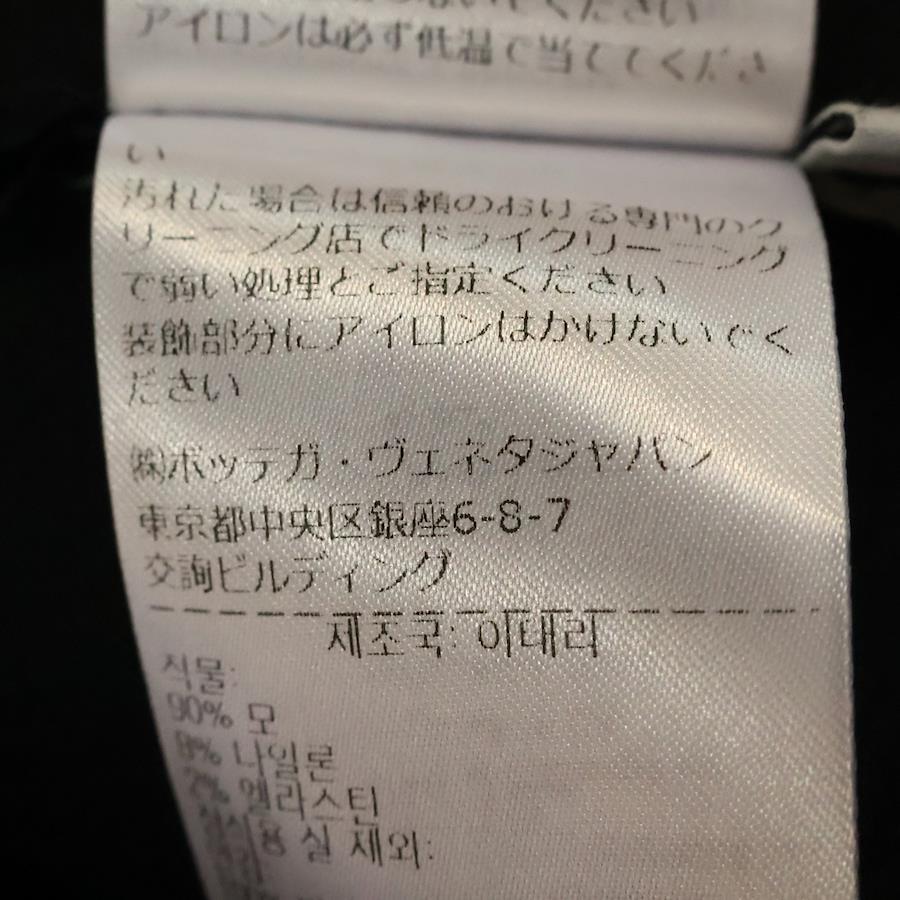 ください
アイロンは必ず低温で当ててくださ
い
汚れた場合は信頼のおける専門のク
リーニング店でドライクリーニング
で弱い処理とご指定ください
装飾部分にアイロンはかけないでく
ださい
㈱ボッテガ・ヴェネタジャパン
東京都中央区銀座6-8-7
交詢ビルディング
제조국: 이태리
직물:
90% 모
8% 나일론
2% 엘라스틴
실 제외: